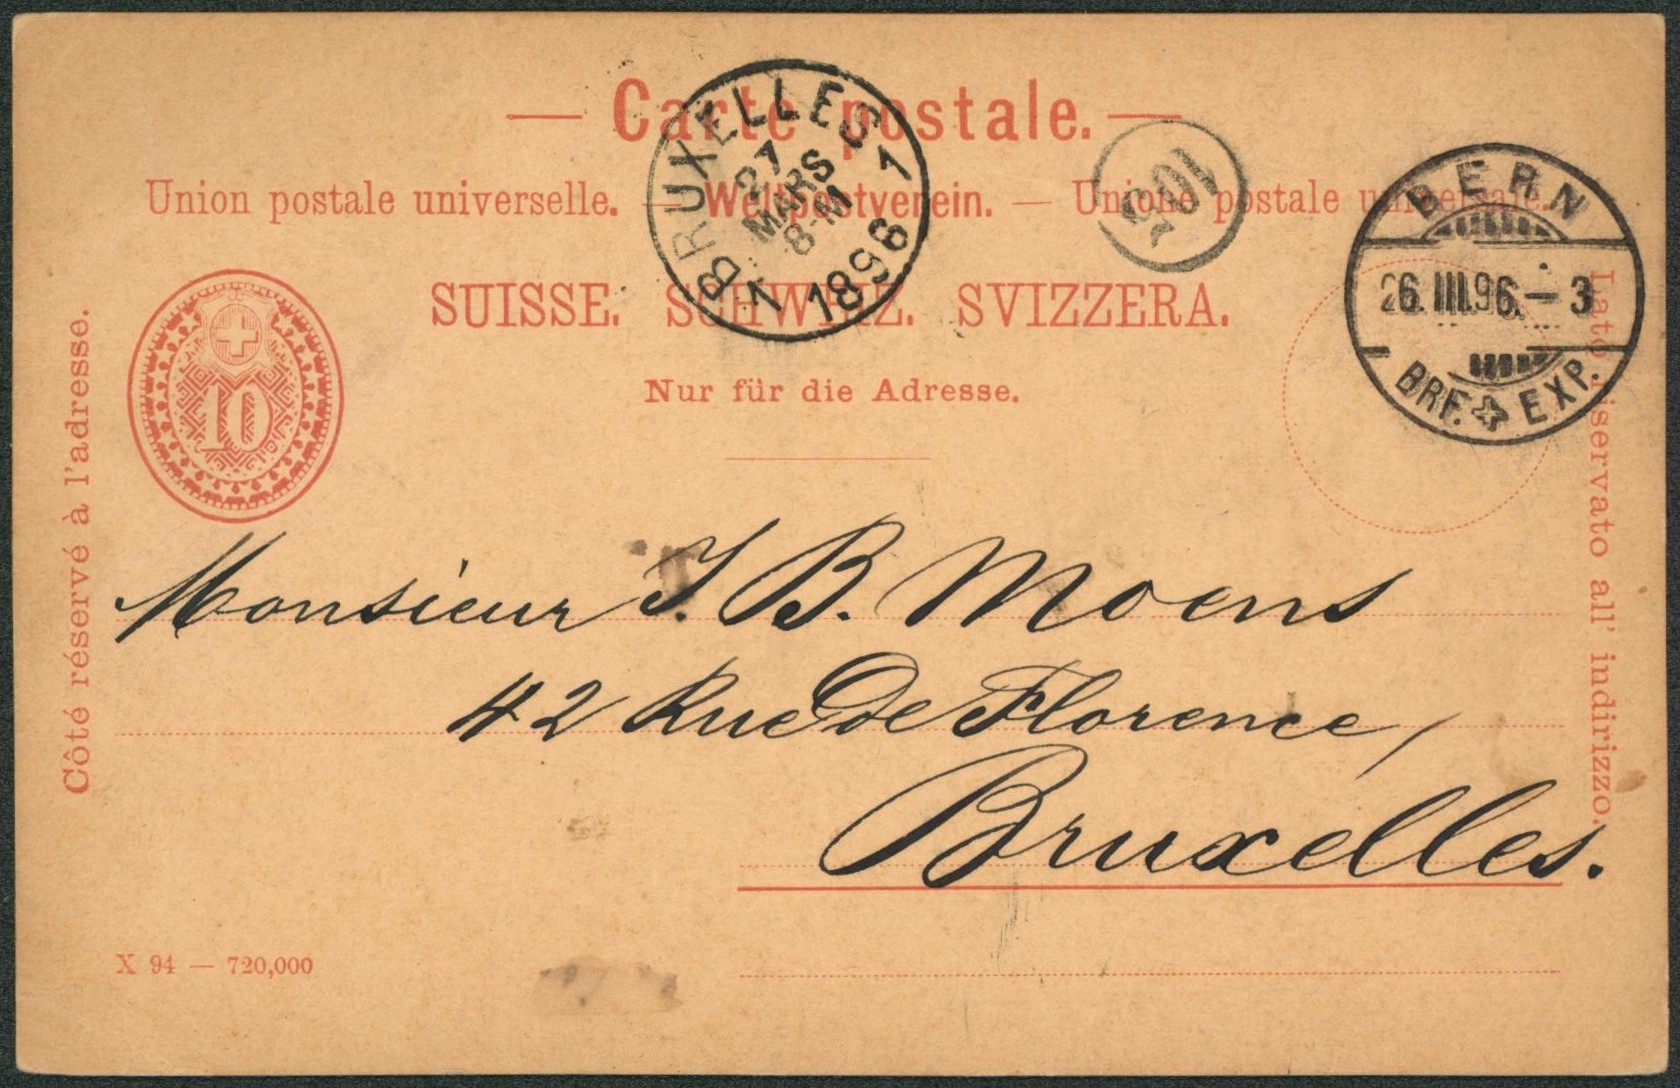 — Carte postale. —
Union postale universelle. — Weltpostverein. — Unione postale universale.
SUISSE. SCHWEIZ. SVIZZERA.
Nur für die Adresse.
Côté réservé à l'adresse.
Lato riservato all' indirizzo.
10
BRUXELLES
27
MARS
8-M
1 1896 1
BERN
26. III. 96. – 3
BRF. EXP.
Monsieur J. B. Moens
42 Rue de Florence,
Bruxelles.
X 94 — 720,000